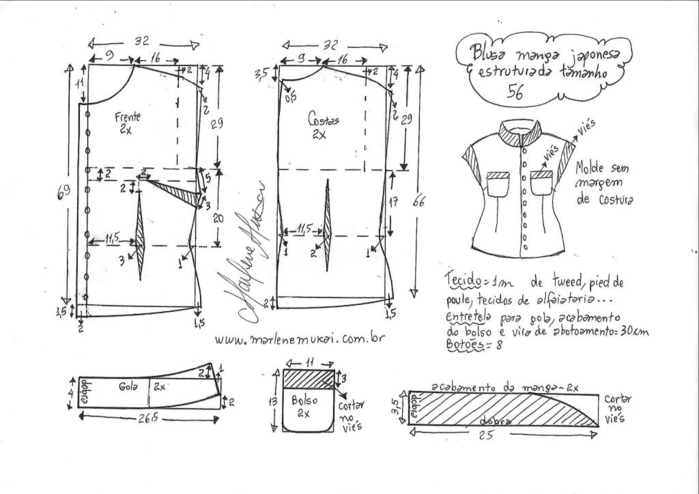 Blusa manga japonesa
estruturada tamanho
56
32
9
16
2
4
11
2
29
Frente
2x
69
2
2
2
5
3
20
11,5
3
1
3,5
2
1,5
32
9
16
3,5
2
4
0,5
2
29
Costas
2x
17
66
11,5
1
2
1
2
1,5
Marlene Mukai
viés
viés
viés
Molde sem
margem
de costura
Tecido=1m de tweed, pied de
poule, tecidos de alfaiataria...
Entretela para gola, acabamento
do bolso e vira de abotoamento=30cm
Botões=8
www.marlenemukai.com.br
4
dobra
Gola
2x
2
1
2
26,5
11
3
13
Bolso
2x
Cortar
no
viés
acabamento da manga-2x
3,5
dobra
dobra
25
Cortar
no
viés